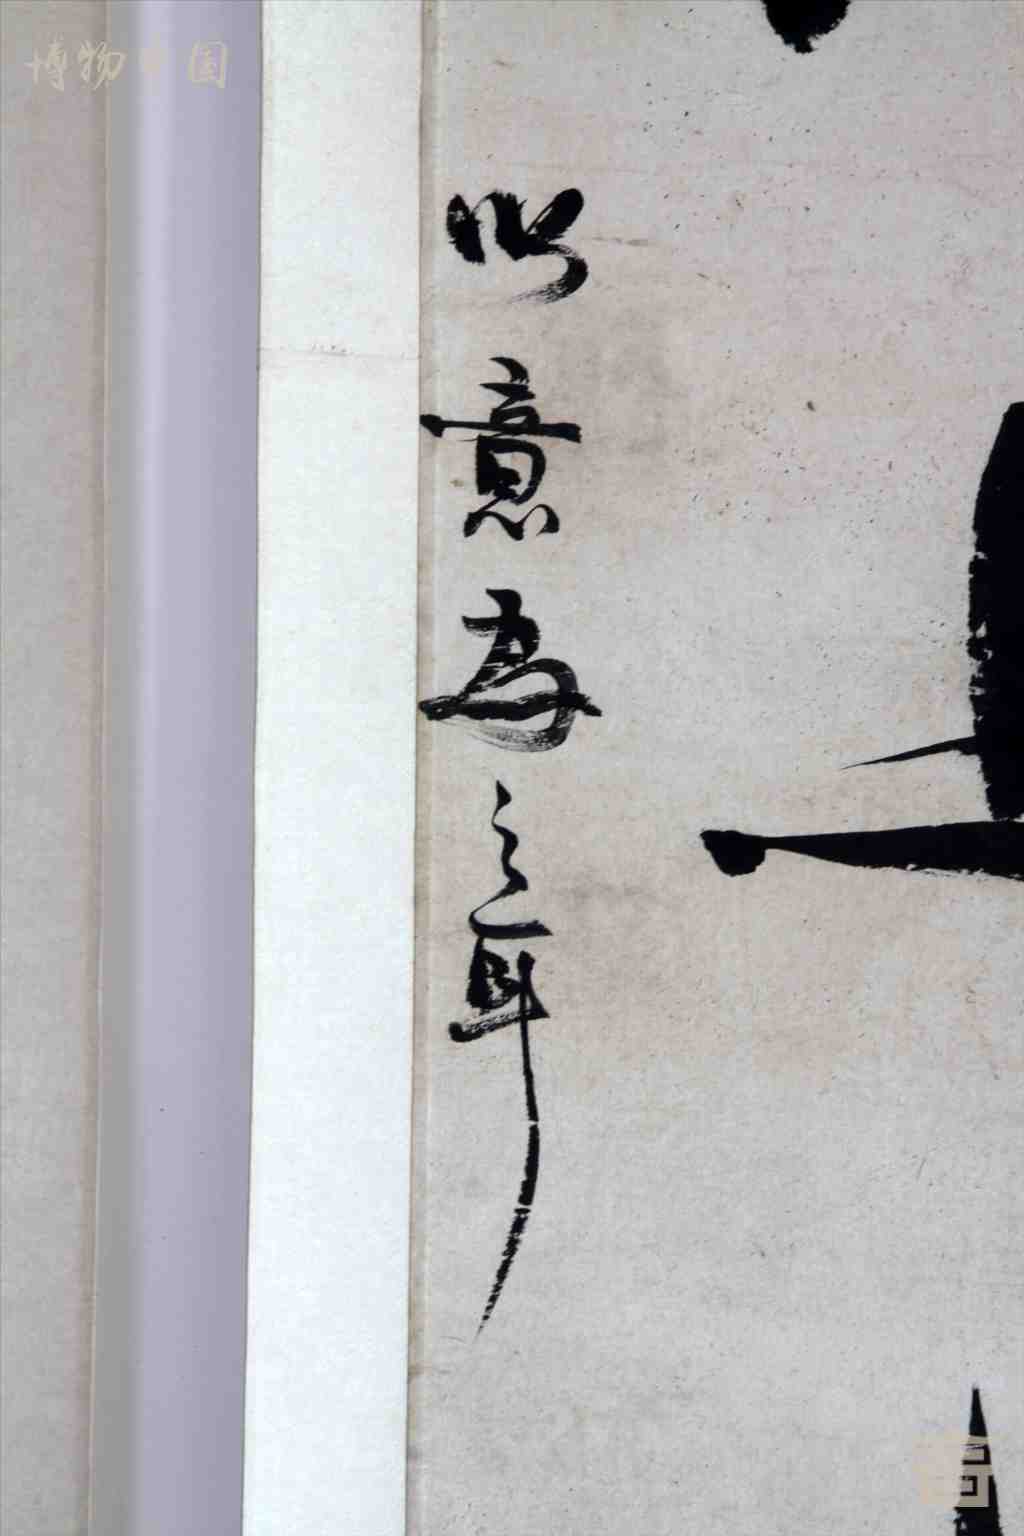 以意為之耳
博物中国